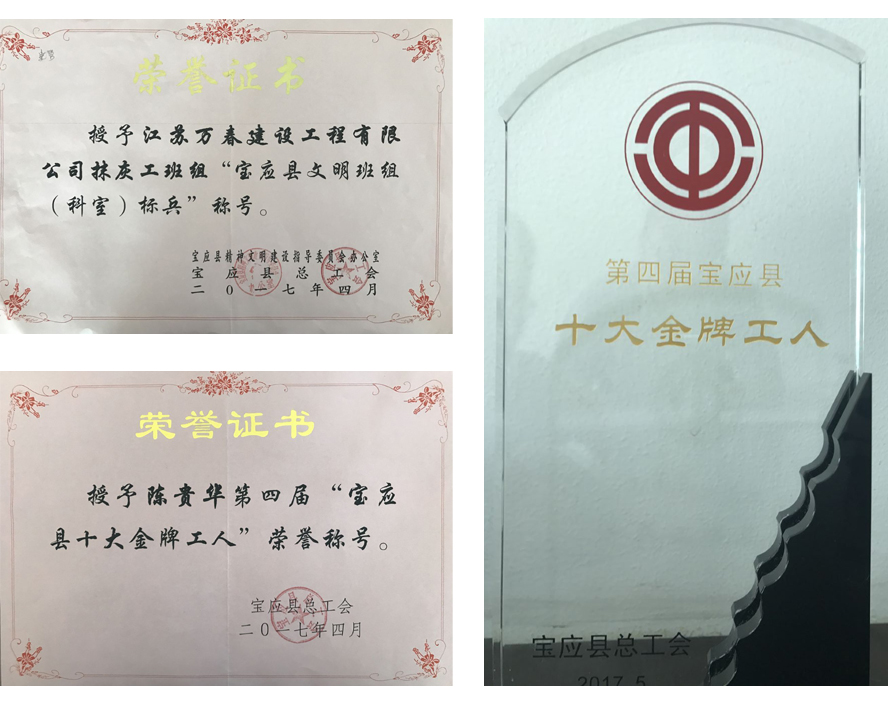 荣誉证书
授予江苏万春建设工程有限
公司抹灰工班组“宝应县文明班组
（科室）标兵”称号。
宝应县精神文明建设指导委员会办公室
宝应县总工会
二〇一七年四月
荣誉证书
授予陈贵华第四届“宝应
县十大金牌工人”荣誉称号。
宝应县总工会
二〇一七年四月
第四届宝应县
十大金牌工人
宝应县总工会
2017.5